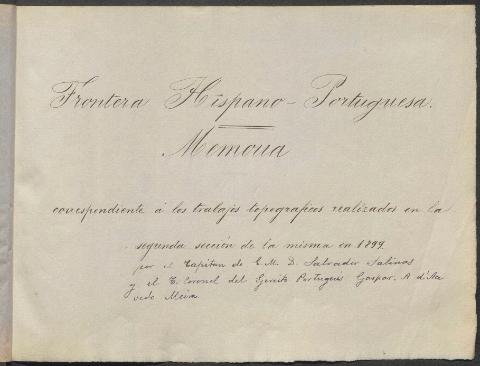 Frontera Hispano-Portuguesa.
Memoria
correspondiente á los trabajos topograficos realizados en la
segunda sección de la misma en 1899
por el Capitan de E. M. D. Salvador Salinas
y el T. Coronel del Ejercito Portugués Gaspar. A. d'Aze
vedo Meira.